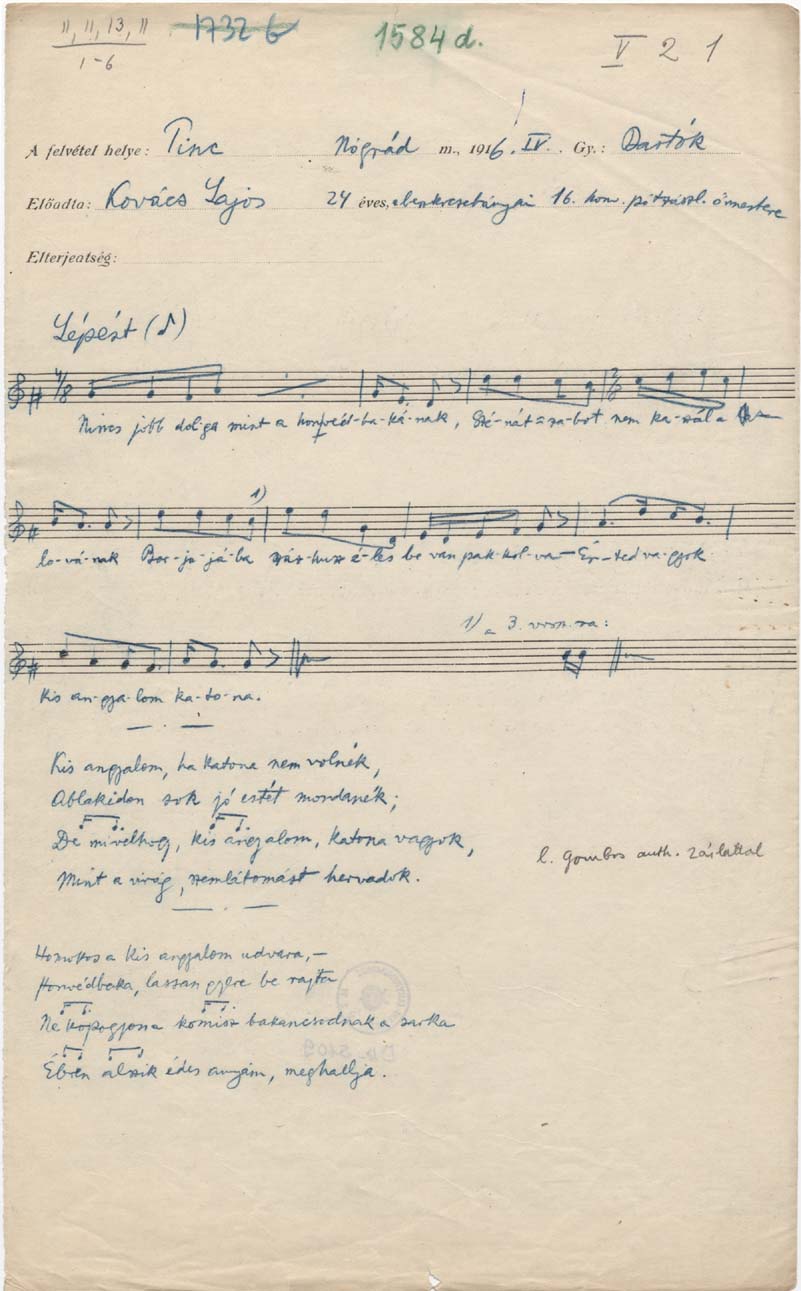 11, 11, 13, 11
1-6
1732 b
1584 d.
V 2 1
A felvétel helye: Tinc Nógrád m., 1916. IV. Gy.: Bartók
Előadta: Kovács Lajos 24 éves, a beszterczebányai 16. honv. pótzászl. őrmestere
Elterjedtség:
Lépést (♪)
4/8
Nincs jobb dol-ga mint a honvéd-ba-ká-nak, Szé-nát-za-bot nem ka-szál a
lo-vá-nak Bor-jú-já-ba száz-husz é-les be van pak-kol-va Ér-ted va-gyok
1)
1) a 3. versz.-ra:
Kis an-gya-lom ka-to-na.
Kis angyalom, ha katona nem volnék,
Ablakidon sok jó estét mondanék;
De mivelhogy, kis angyalom, katona vagyok,
Mint a virág, szemlátomást hervadok.
l. Gombos auth. zárlattal
Homokos a kis angyalom udvara, –
Honvédbaka, lassan gyere be rajta
Ne kopogjona komisz bakancsodnak a sarka
Ébren alszik édes anyám, meghallja.